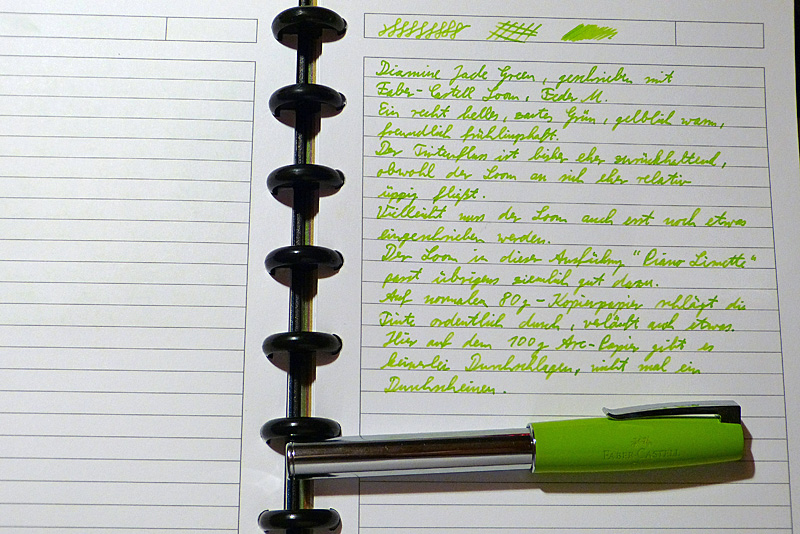 Diamine Jade Green, geschrieben mit
Faber-Castell Loom, Feder M.
Ein recht helles, zartes Grün, gelblich warm,
freundlich frühlingshaft.
Der Tintenfluss ist bisher eher zurückhaltend,
obwohl der Loom an sich eher relativ
üppig fließt.
Vielleicht muss der Loom auch erst noch etwas
eingeschrieben werden.
Der Loom in dieser Ausführung "Piano Limette"
passt übrigens ziemlich gut dazu.
Auf normalen 80g-Kopierpapier schlägt die
Tinte ordentlich durch, verläuft auch etwas.
Hier auf dem 100g Arc-Papier gibt es
keinerlei Durchschlagen, nicht mal ein
Durchscheinen.
FABER-CASTELL